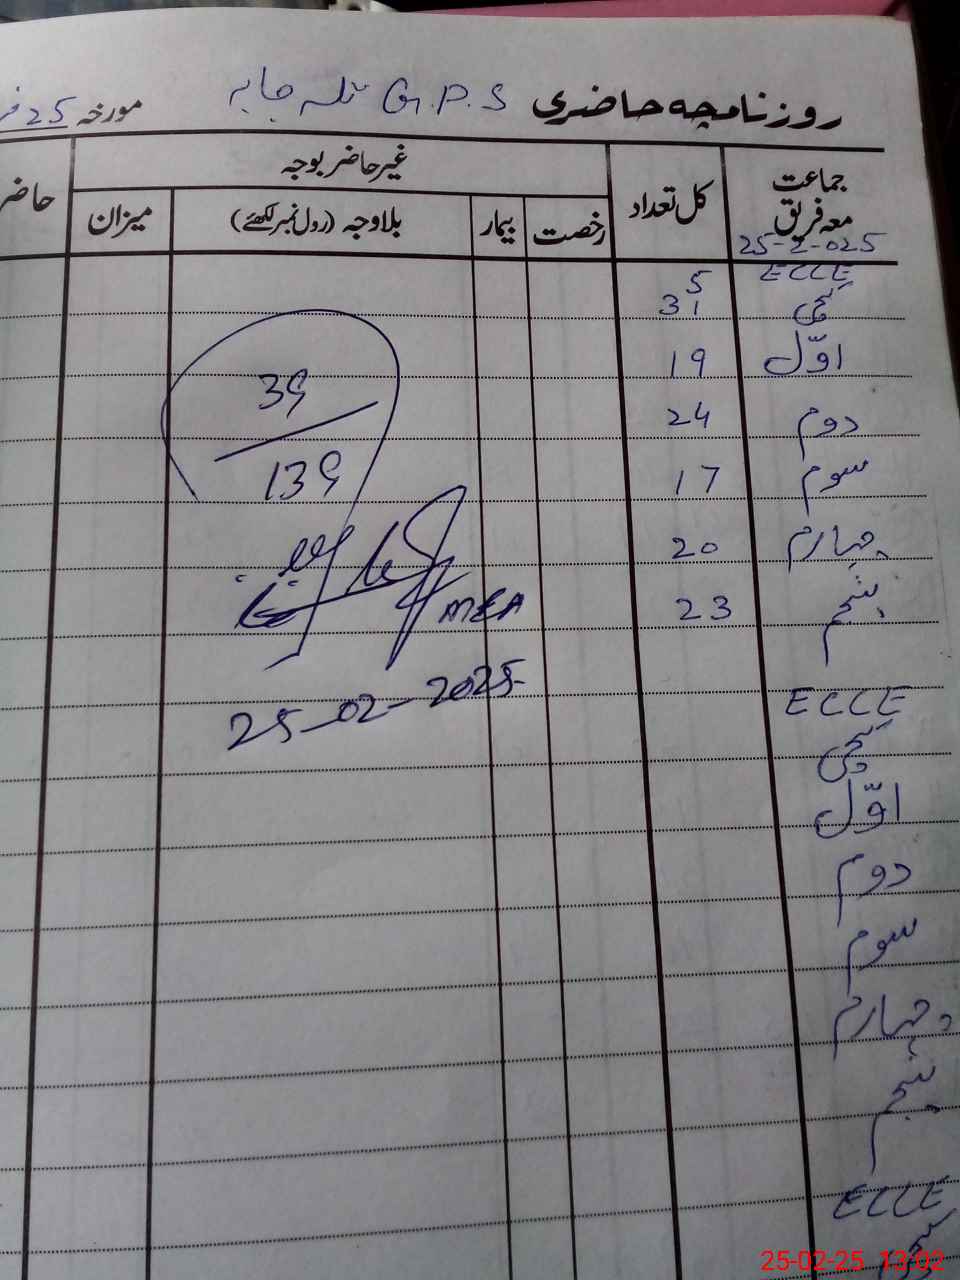 روزنامچہ حاضری G.P.S تلہ جابہ مورخہ 25
جماعت معہ فریق
کل تعداد
غیر حاضر بوجہ
رخصت
بیمار
بلاوجہ (رول نمبر لکھئے)
میزان
حاضر
25-2-025
ECCE 5
کچی 31
اوّل 19
دوم 24
سوم 17
چہارم 20
پنجم 23
39
139
MEA
25-02-2025
ECCE
کچی
اوّل
دوم
سوم
چہارم
پنجم
ECCE
کچی
25-02-25 13:02